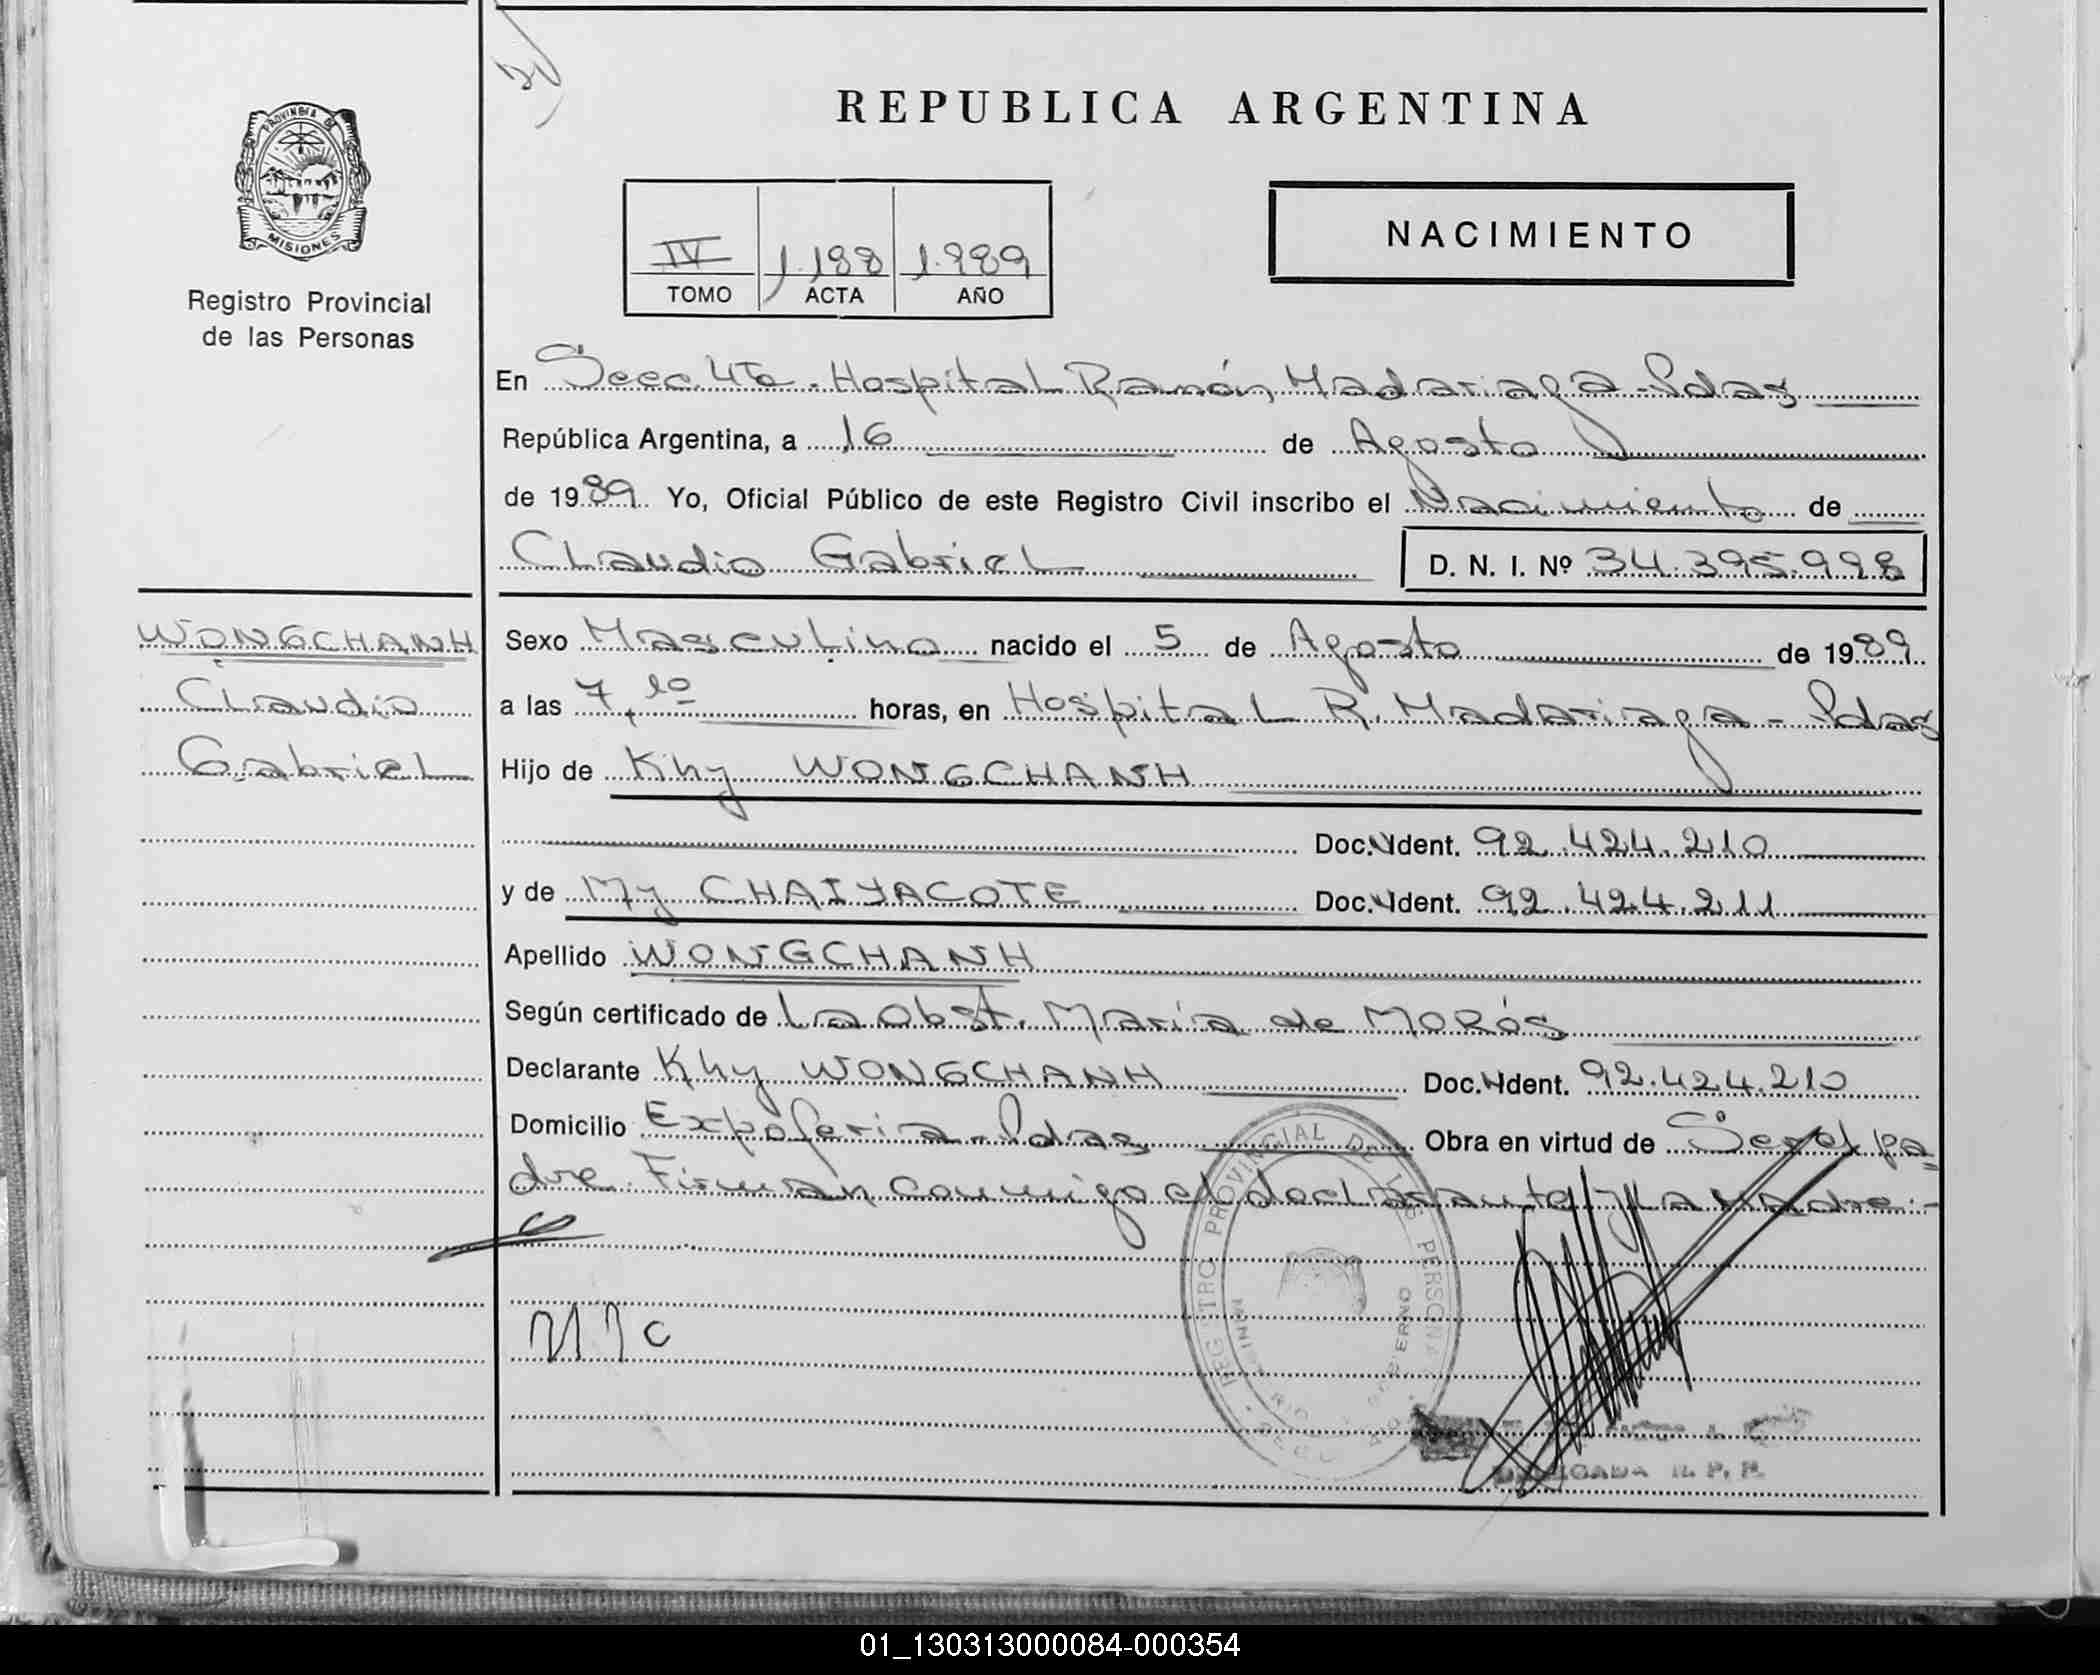 REPUBLICA ARGENTINA
PROVINCIA DE
MISIONES
Registro Provincial
de las Personas
IV 1.188 1.989
TOMO ACTA AÑO
NACIMIENTO
En Secc. 4ta. Hospital Ramón Madariaga - Pdas
República Argentina, a 16 de Agosto
de 1989 Yo, Oficial Público de este Registro Civil inscribo el Nacimiento de
Claudio Gabriel D. N. I. Nº 34.395.998
WONGCHANH
Claudio
Gabriel
Sexo Masculino nacido el 5 de Agosto de 1989
a las 7,10 horas, en Hospital R. Madariaga - Pdas
Hijo de Khy WONGCHANH
Doc. Ident. 92.424.210
y de My CHAIYACOTE Doc. Ident. 92.424.211
Apellido WONGCHANH
Según certificado de la Obst. María de MORÓS
Declarante Khy WONGCHANH Doc. Ident. 92.424.210
Domicilio Expoferia - Pdas Obra en virtud de Ser el pa
dre. Firman conmigo el declarante y la Madre.-
REGISTRO PROVINCIAL DE LAS PERSONAS
DELEGADA R. P. P.
01_130313000084-000354